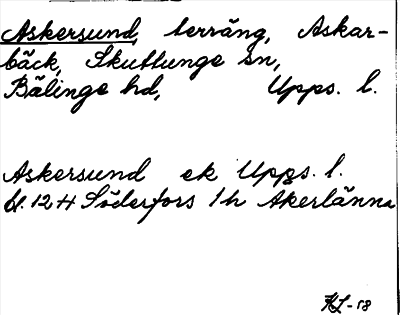 Askersund, terräng, Askar-
bäck, Skuttunge sn,
Bälinge hd, Upps. l.
Askersund ek Upps. l.
bl. 12 H Söderfors 1h Åkerlänna
KL-58